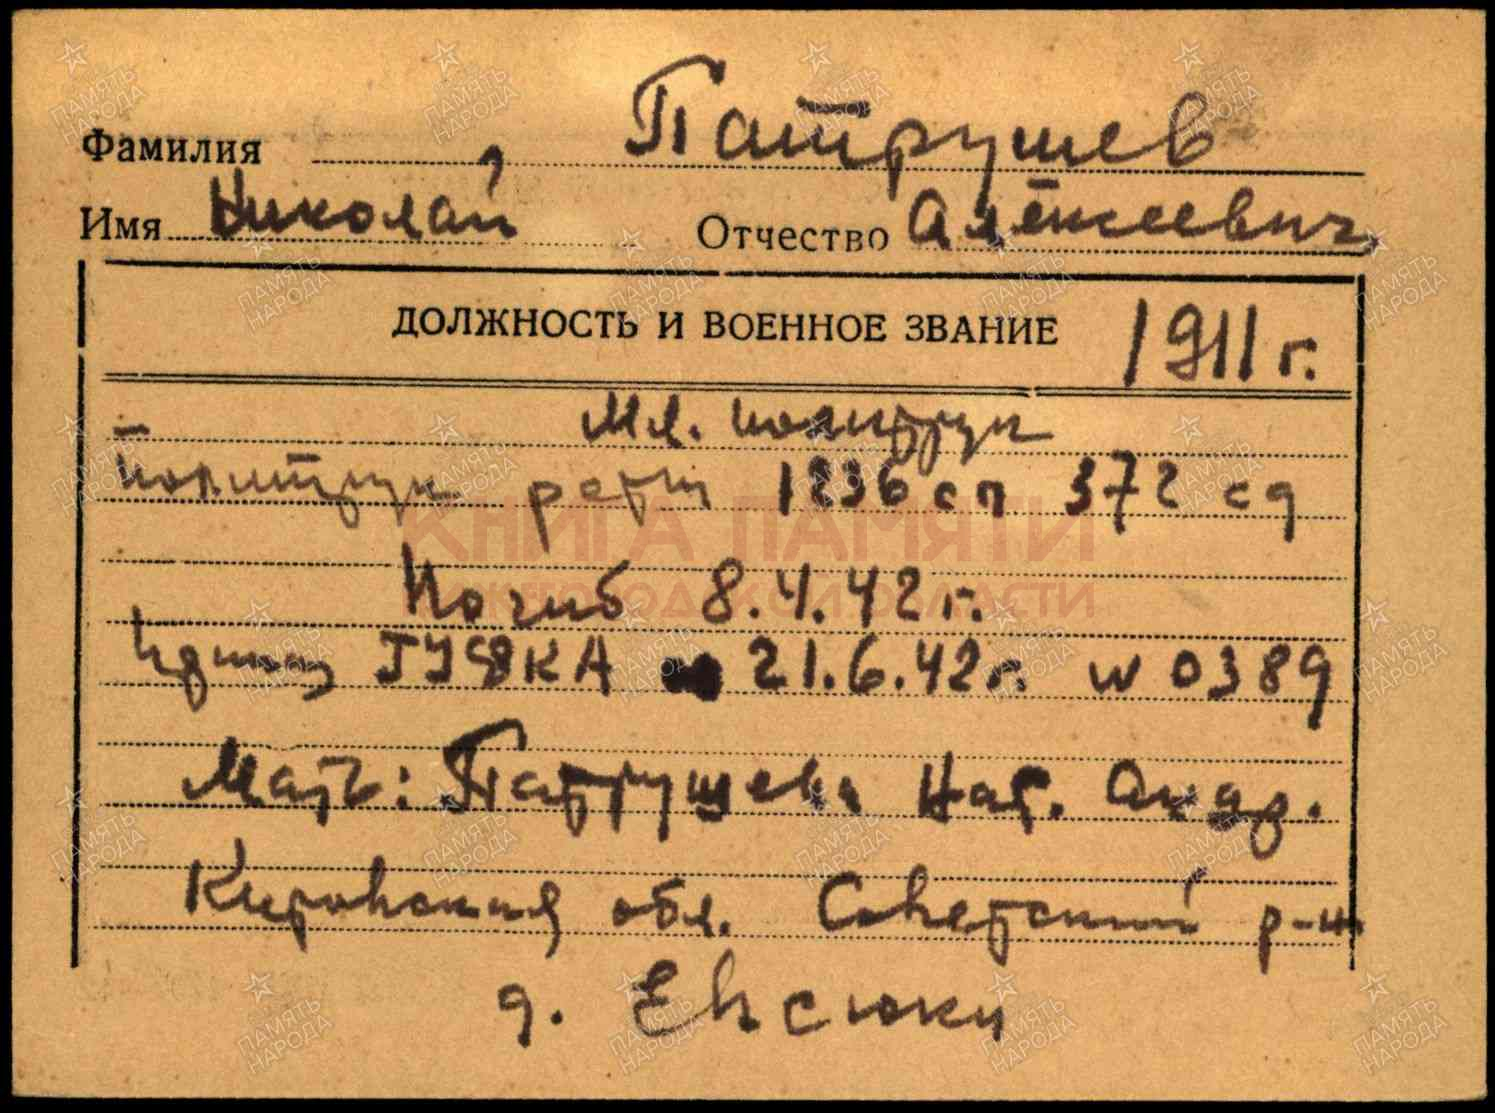 Фамилия Патрушев
Имя Николай Отчество Алексеевич
ДОЛЖНОСТЬ И ВОЕННОЕ ЗВАНИЕ 1911 г.
Мл. политрук
политрук роты 1236 сп 372 сд
КНИГА ПАМЯТИ
Погиб 8.4.42 г.
НИЖЕГОРОДСКОЙ ОБЛАСТИ
приказ 21.6.42 г. № 0389
Мать: Патрушева Нат. Андр.
Кировская обл. Советский р-н
д. Евсюки
ПАМЯТЬ НАРОДА